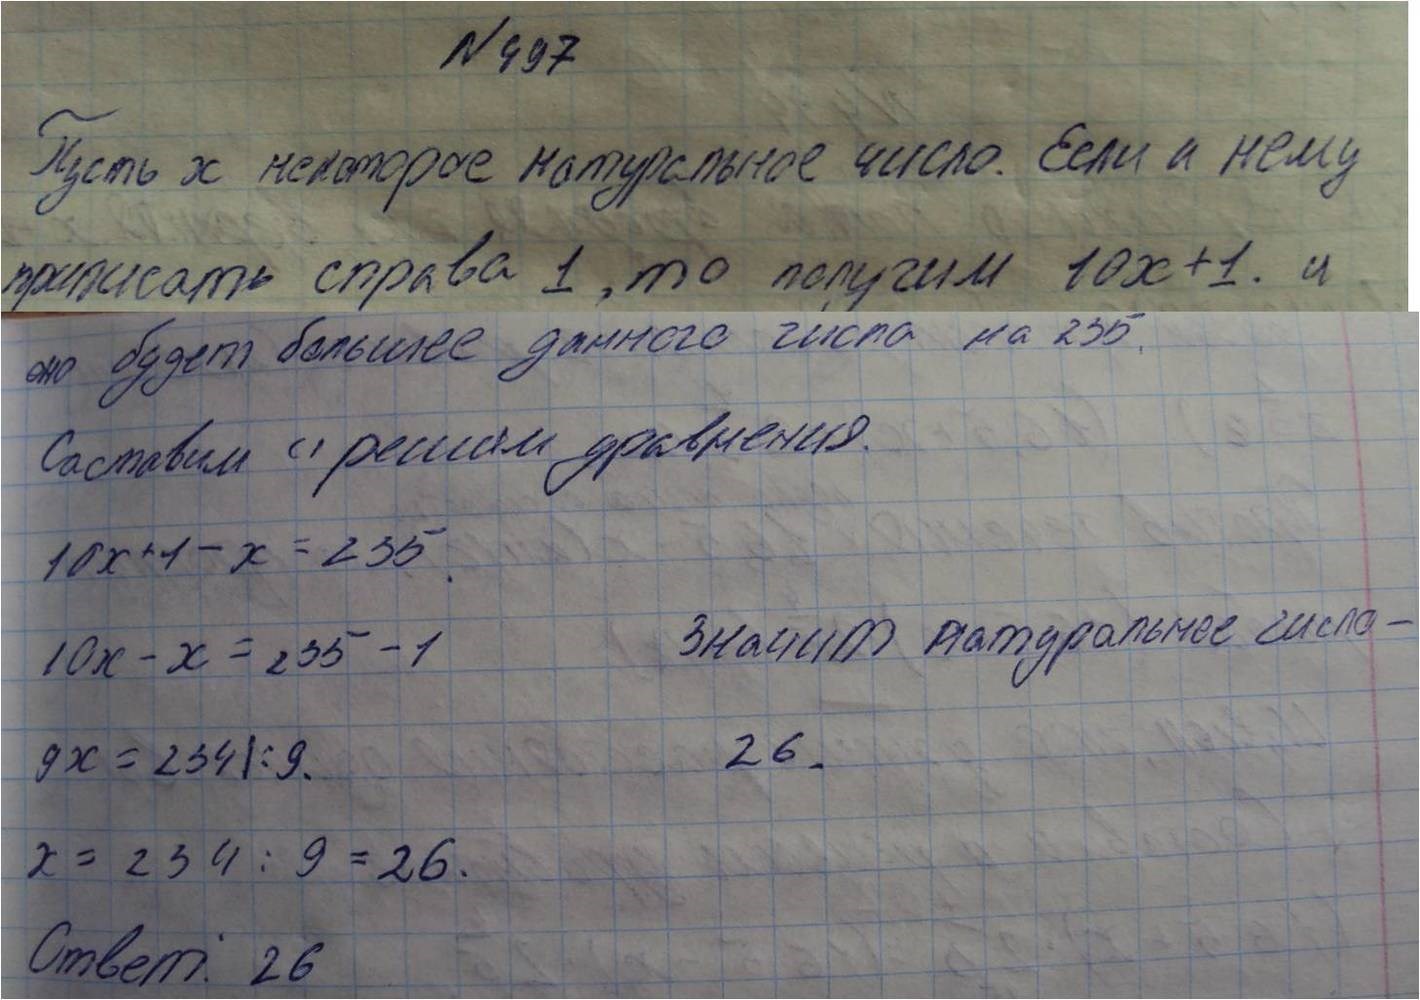 N 497
Пусть x некоторое натуральное число. Если к нему
приписать справа 1, то получим 10x+1. и
оно будет большее данного числа на 235.
Составим и решим уравнения.
10x+1-x=235.
10x-x=235-1
9x=234|:9.
x=234:9=26.
Ответ: 26
Значит натуральное число-
26.